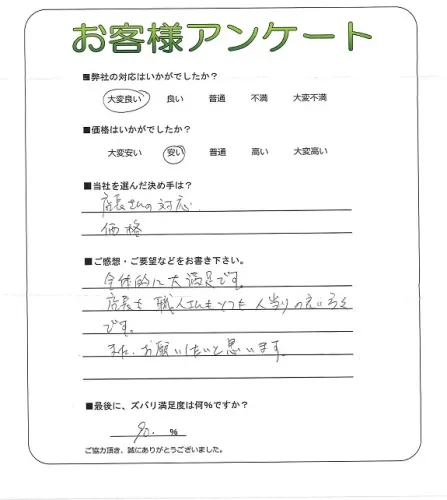 お客様アンケート
■弊社の対応はいかがでしたか？
大変良い 良い 普通 不満 大変不満
■価格はいかがでしたか？
大変安い 安い 普通 高い 大変高い
■当社を選んだ決め手は？
店長さんの対応
価格
■ご感想・ご要望などをお書き下さい。
全体的に大満足です。
店長も職人さんもとても人当りの良い
です。
また、お願いしたいと思います。
■最後に、ズバリ満足度は何%ですか？
90. %
ご協力頂き、誠にありがとうございました。